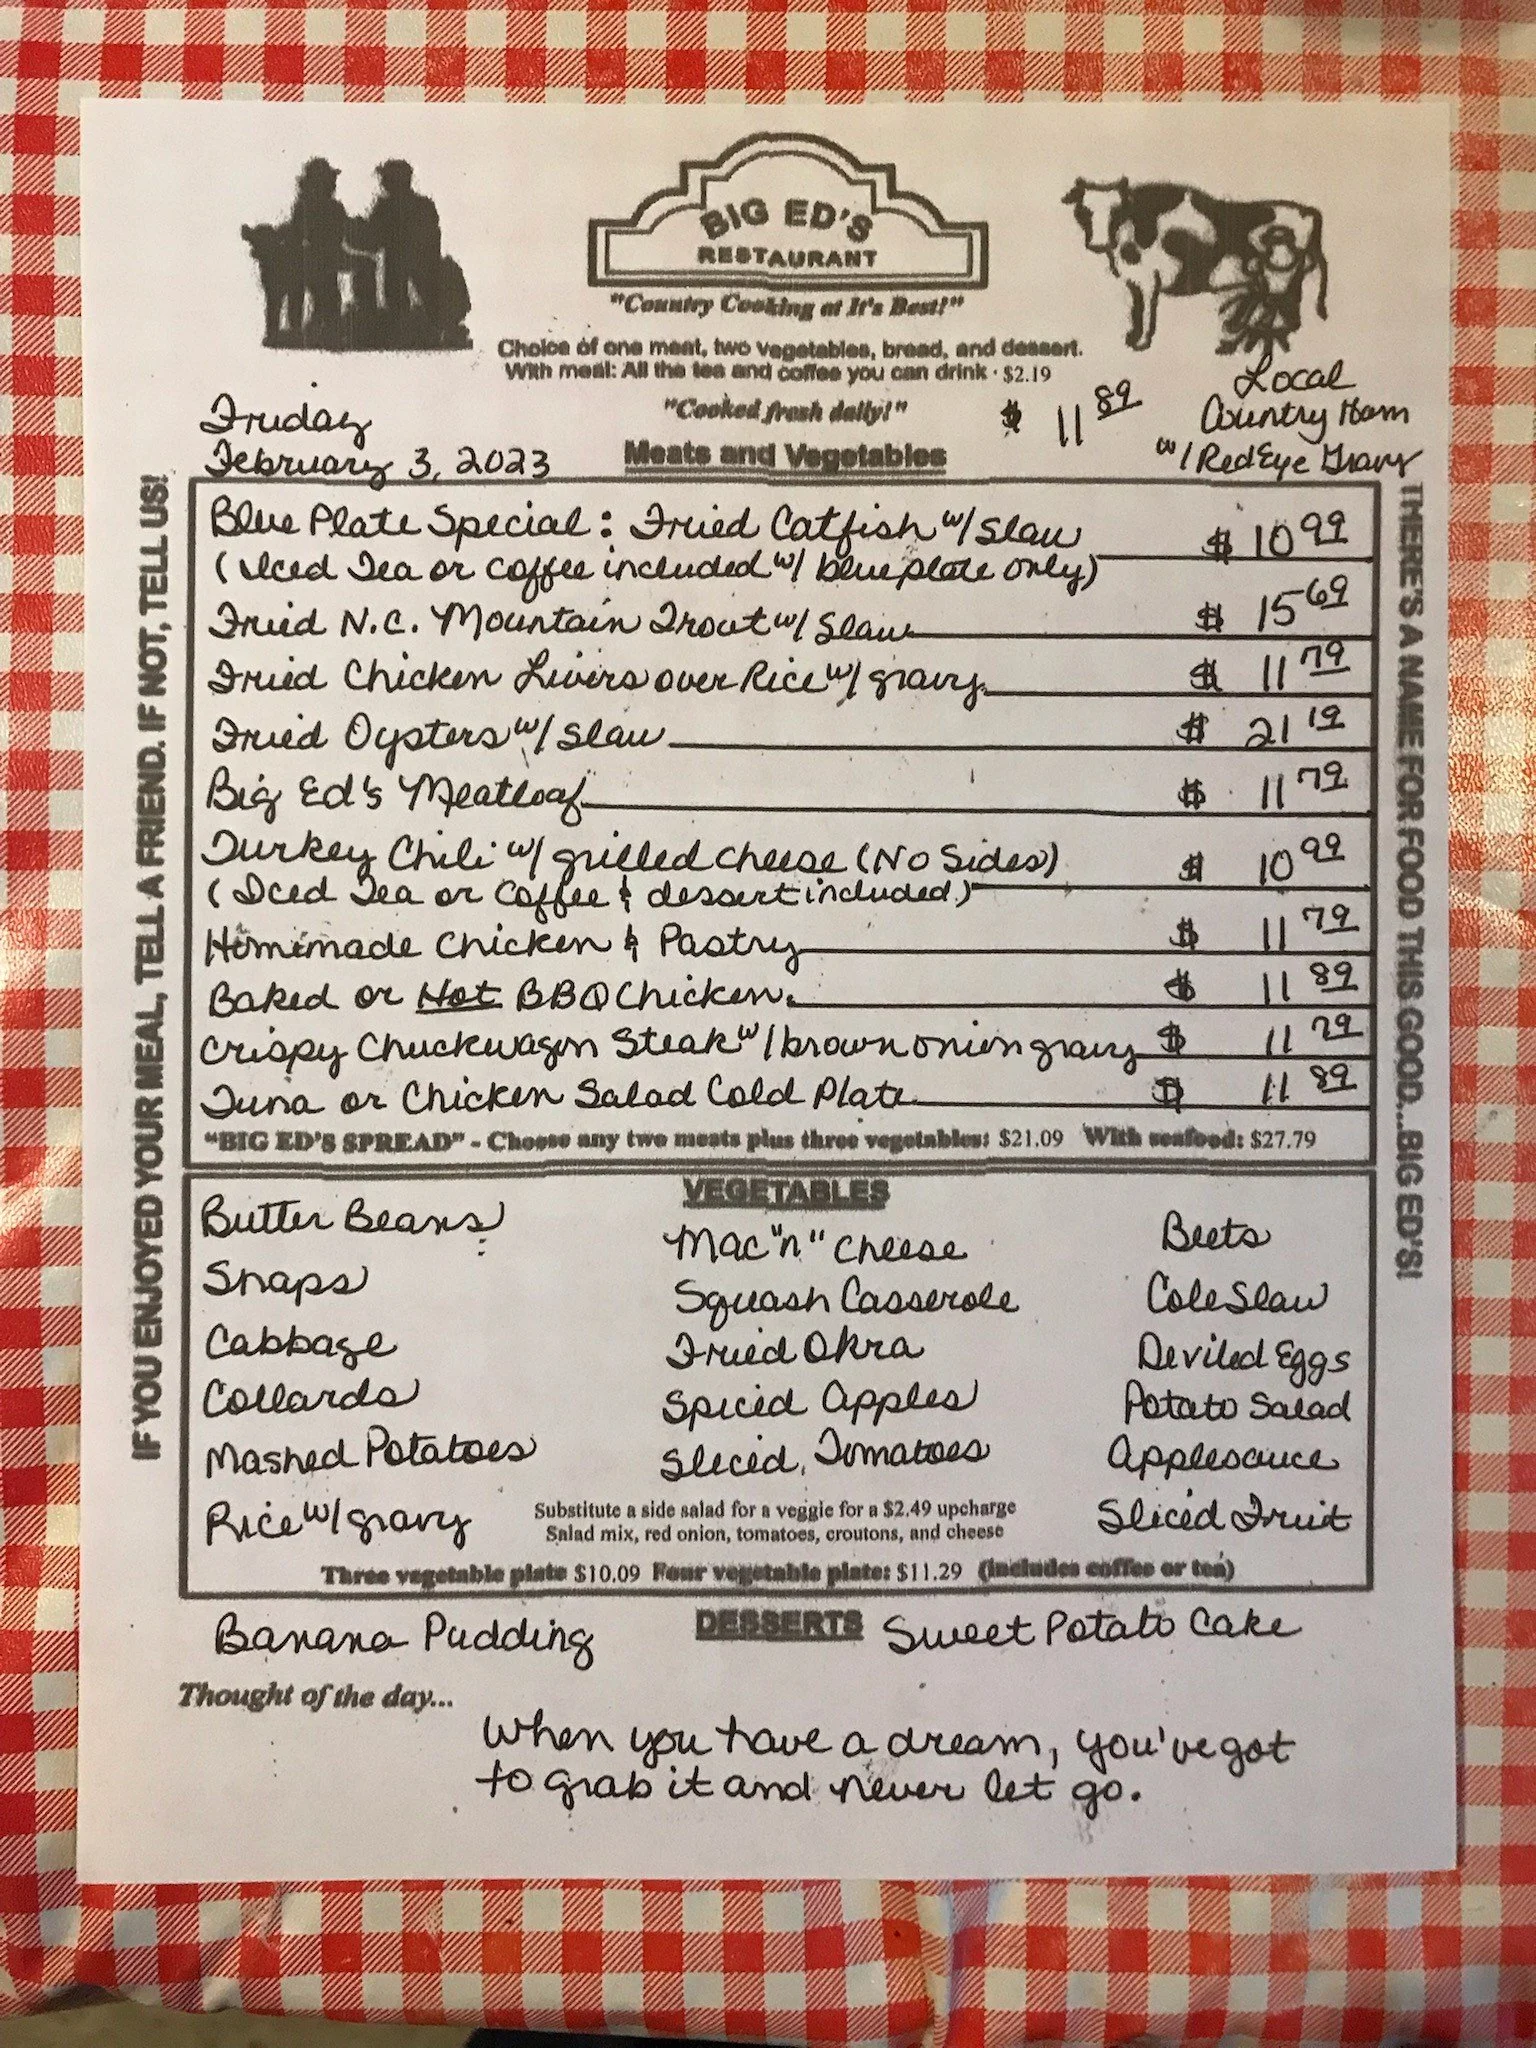 BIG ED'S
RESTAURANT
"Country Cooking at It's Best!"
Choice of one meat, two vegetables, bread, and dessert.
With meal: All the tea and coffee you can drink · $2.19
"Cooked fresh daily!"
$ 11 89
Local
Country Ham
w/ RedEye Gravy
Friday
February 3, 2023
Meats and Vegetables
IF YOU ENJOYED YOUR MEAL, TELL A FRIEND. IF NOT, TELL US!
THERE'S A NAME FOR FOOD THIS GOOD...BIG ED'S!
Blue Plate Special: Fried Catfish w/ Slaw $ 10 99
(Iced Tea or Coffee included w/ blue plate only)
Fried N.C. Mountain Trout w/ Slaw $ 15 69
Fried Chicken Livers over Rice w/ gravy $ 11 79
Fried Oysters w/ Slaw $ 21 19
Big Ed's Meatloaf $ 11 79
Turkey Chili w/ grilled cheese (No Sides) $ 10 99
(Iced Tea or Coffee & dessert included)
Homemade Chicken & Pastry $ 11 79
Baked or Hot BBQ Chicken $ 11 89
Crispy Chuckwagon Steak w/ brown onion gravy $ 11 79
Tuna or Chicken Salad Cold Plate $ 11 89
"BIG ED'S SPREAD" - Choose any two meats plus three vegetables: $21.09 With seafood: $27.79
VEGETABLES
Butter Beans
Snaps
Cabbage
Collards
Mashed Potatoes
Rice w/ gravy
Mac "n" Cheese
Squash Casserole
Fried Okra
Spiced Apples
Sliced Tomatoes
Beets
Cole Slaw
Deviled Eggs
Potato Salad
Applesauce
Sliced Fruit
Substitute a side salad for a veggie for a $2.49 upcharge
Salad mix, red onion, tomatoes, croutons, and cheese
Three vegetable plate $10.09 Four vegetable plate: $11.29 (includes coffee or tea)
DESSERTS
Banana Pudding
Sweet Potato Cake
Thought of the day...
When you have a dream, you've got
to grab it and never let go.